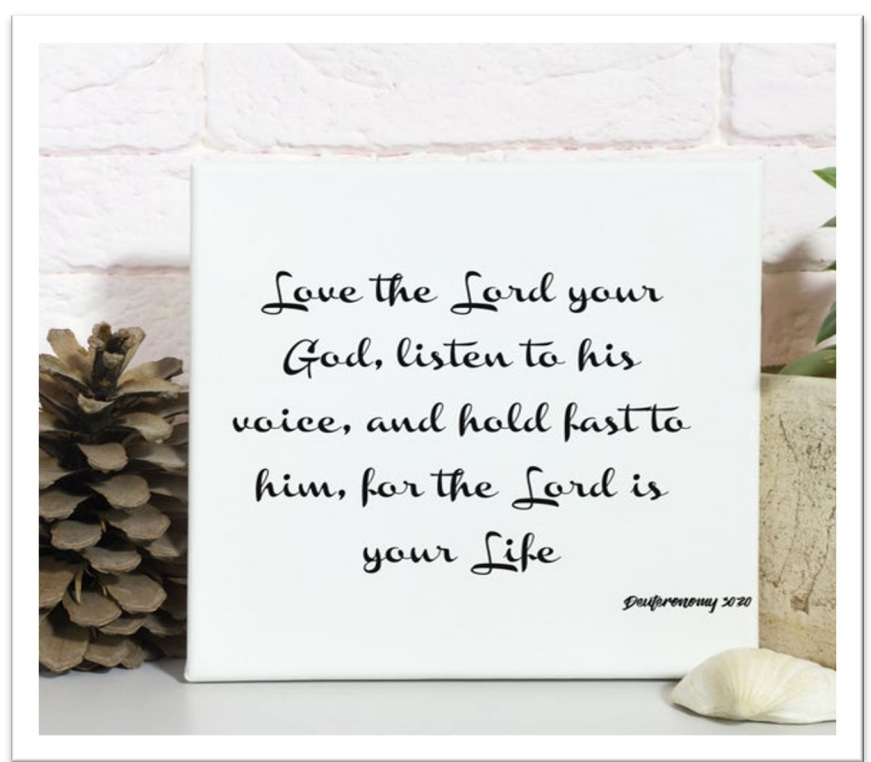 Love the Lord your
God, listen to his
voice, and hold fast to
him, for the Lord is
your Life
Deuteronomy 30:20